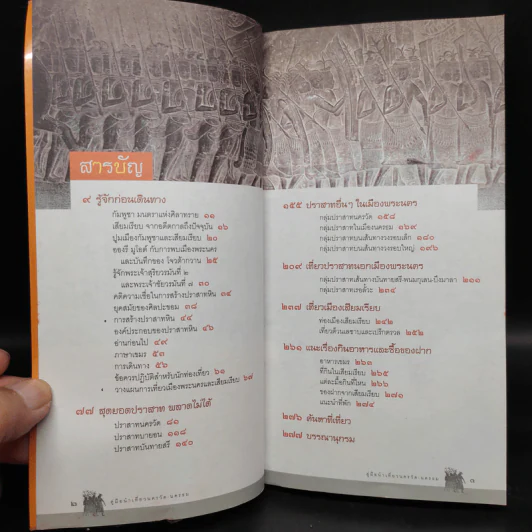 สารบัญ
๙ รู้จักก่อนเดินทาง
กัมพูชา มนตราแห่งศิลาทราย ๑๑
เสียมเรียบ จากอดีตกาลถึงปัจจุบัน ๑๖
ปูมเมืองกัมพูชาและเสียมเรียบ ๒๐
อองรี มูโอต์ กับการพบเมืองพระนคร
และบันทึกของ โจวต้ากวาน ๒๕
รู้จักพระเจ้าสุริยวรมันที่ ๒
และพระเจ้าชัยวรมันที่ ๗ ๓๐
คติความเชื่อในการสร้างปราสาทหิน ๓๔
ยุคสมัยของศิลปะขอม ๓๘
การสร้างปราสาทหิน ๔๔
องค์ประกอบของปราสาทหิน ๔๖
อ่านก่อนไป ๔๙
ภาษาเขมร ๕๓
การเดินทาง ๕๖
ข้อควรปฏิบัติสำหรับนักท่องเที่ยว ๖๑
วางแผนการเที่ยวเมืองพระนครและเสียมเรียบ ๖๗
๗๗ สุดยอดปราสาท พลาดไม่ได้
ปราสาทนครวัด ๘๐
ปราสาทบายอน ๑๑๘
ปราสาทบันทายสรี ๑๔๐
๒ คู่มือนำเที่ยวนครวัด-นครธม
๑๕๕ ปราสาทอื่นๆ ในเมืองพระนคร
กลุ่มปราสาทนครวัด ๑๕๘
กลุ่มปราสาทในเมืองนครธม ๑๖๙
กลุ่มปราสาทบนเส้นทางวงรอบเล็ก ๑๘๐
กลุ่มปราสาทบนเส้นทางวงรอบใหญ่ ๑๙๖
๒๐๙ เที่ยวปราสาทนอกเมืองพระนคร
กลุ่มปราสาทเส้นทางบันทายสรี-พนมกุเลน-บึงมาลา ๒๑๑
กลุ่มปราสาทเรอลั๊วะ ๒๒๘
๒๓๗ เที่ยวเมืองเสียมเรียบ
ท่องเมืองเสียมเรียบ ๒๔๒
เที่ยวตัวนเลซาบและเปร็กตวล ๒๕๒
๒๖๑ แนะเรื่องกินอาหารและซื้อของฝาก
อาหารเขมร ๒๖๑
ที่กินในเสียมเรียบ ๒๖๕
แต่ละมื้อกินที่ไหน ๒๖๖
ของฝากจากเสียมเรียบ ๒๗๑
แนะนำที่พัก ๒๗๔
๒๗๖ ค้นหาที่เที่ยว
๒๗๗ บรรณานุกรม
คู่มือนำเที่ยวนครวัด-นครธม ๓